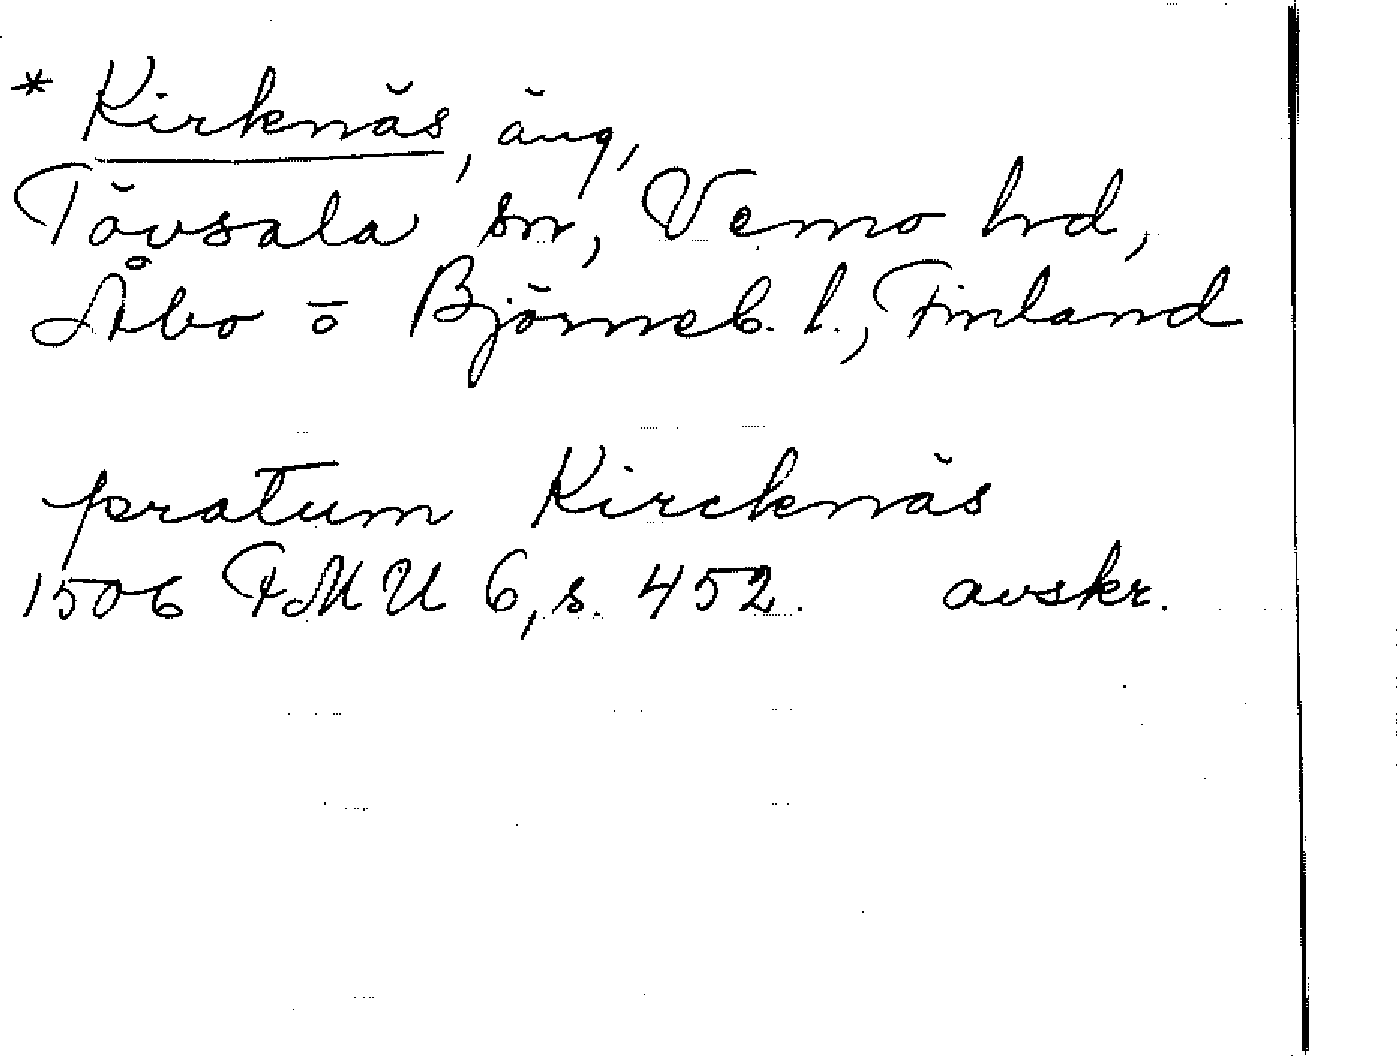 * Kirknäs, äng,
Tövsala sn, Vemo hd,
Åbo o Björneb. l., Finland
pratum Kircknäs
1506 FMU 6, s. 452. avskr.